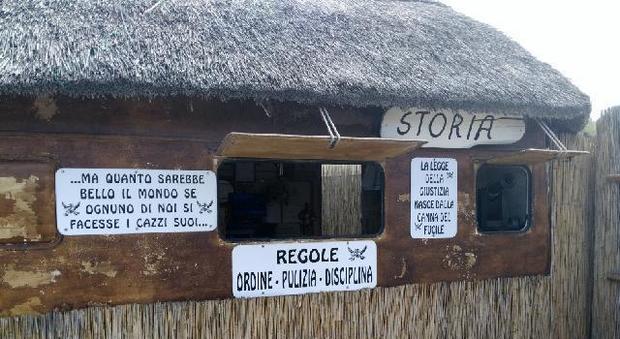 STORIA
...MA QUANTO SAREBBE
BELLO IL MONDO SE
OGNUNO DI NOI SI
FACESSE I CAZZI SUOI...
LA LEGGE
DELLA
GIUSTIZIA
NASCE DALLA
CANNA DEL
FUCILE
REGOLE
ORDINE - PULIZIA - DISCIPLINA